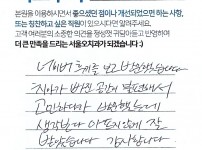 본원을 이용하시면서 좋으셨던 점이나 개선되었으면 하는 사항,
또는 칭찬하고 싶은 직원이 있으시다면 알려주세요.
고객 여러분의 소중한 의견을 정성껏 귀담아듣고 반영하여
더 큰 만족을 드리는 서울오치과가 되겠습니다 :)
네이버 후기를 보고 방문했습니다
치아가 빠진 공간이 불편해서
고민하다가 신뢰했는데
생각보다 아프지않게 잘
받았습니다 감사합니다